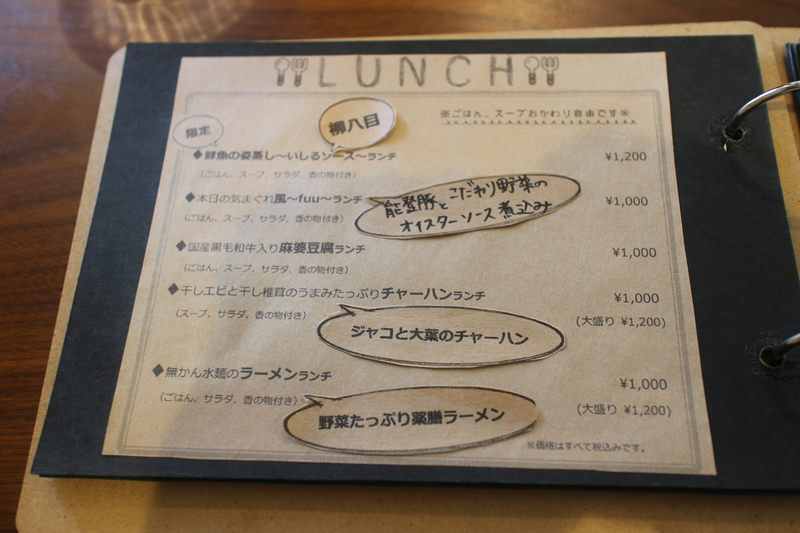 LUNCH
※ごはん、スープおかわり自由です※
限定
柳八目
◆鮮魚の姿蒸し～いしるソース～ランチ ¥1,200
(ごはん、スープ、サラダ、香の物付き)
◆本日の気まぐれ風～fuu～ランチ ¥1,000
(ごはん、スープ、サラダ、香の物付き)
能登豚とこだわり野菜の
オイスターソース煮込み
◆国産黒毛和牛入り麻婆豆腐ランチ ¥1,000
(ごはん、スープ、サラダ、香の物付き)
◆干しエビと干し椎茸のうまみたっぷりチャーハンランチ ¥1,000
(スープ、サラダ、香の物付き) (大盛り ¥1,200)
ジャコと大葉のチャーハン
◆無かん水麺のラーメンランチ ¥1,000
(ごはん、サラダ、香の物付き) (大盛り ¥1,200)
野菜たっぷり薬膳ラーメン
※価格はすべて税込みです。